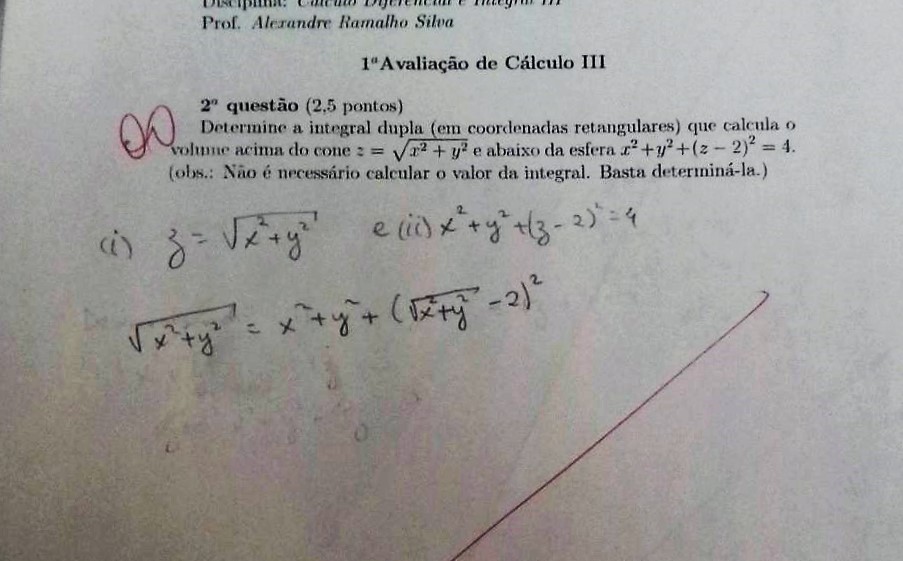 Disciplina: Cálculo Diferencial e Integral III
Prof. Alexandre Ramalho Silva
1ª Avaliação de Cálculo III
2ª questão (2,5 pontos)
Determine a integral dupla (em coordenadas retangulares) que calcula o
volume acima do cone z = √(x² + y²) e abaixo da esfera x² + y² + (z − 2)² = 4.
(obs.: Não é necessário calcular o valor da integral. Basta determiná-la.)
(i) z = √(x² + y²) e (ii) x² + y² + (z − 2)² = 4
√(x² + y²) = x² + y² + (√(x² + y²) − 2)²